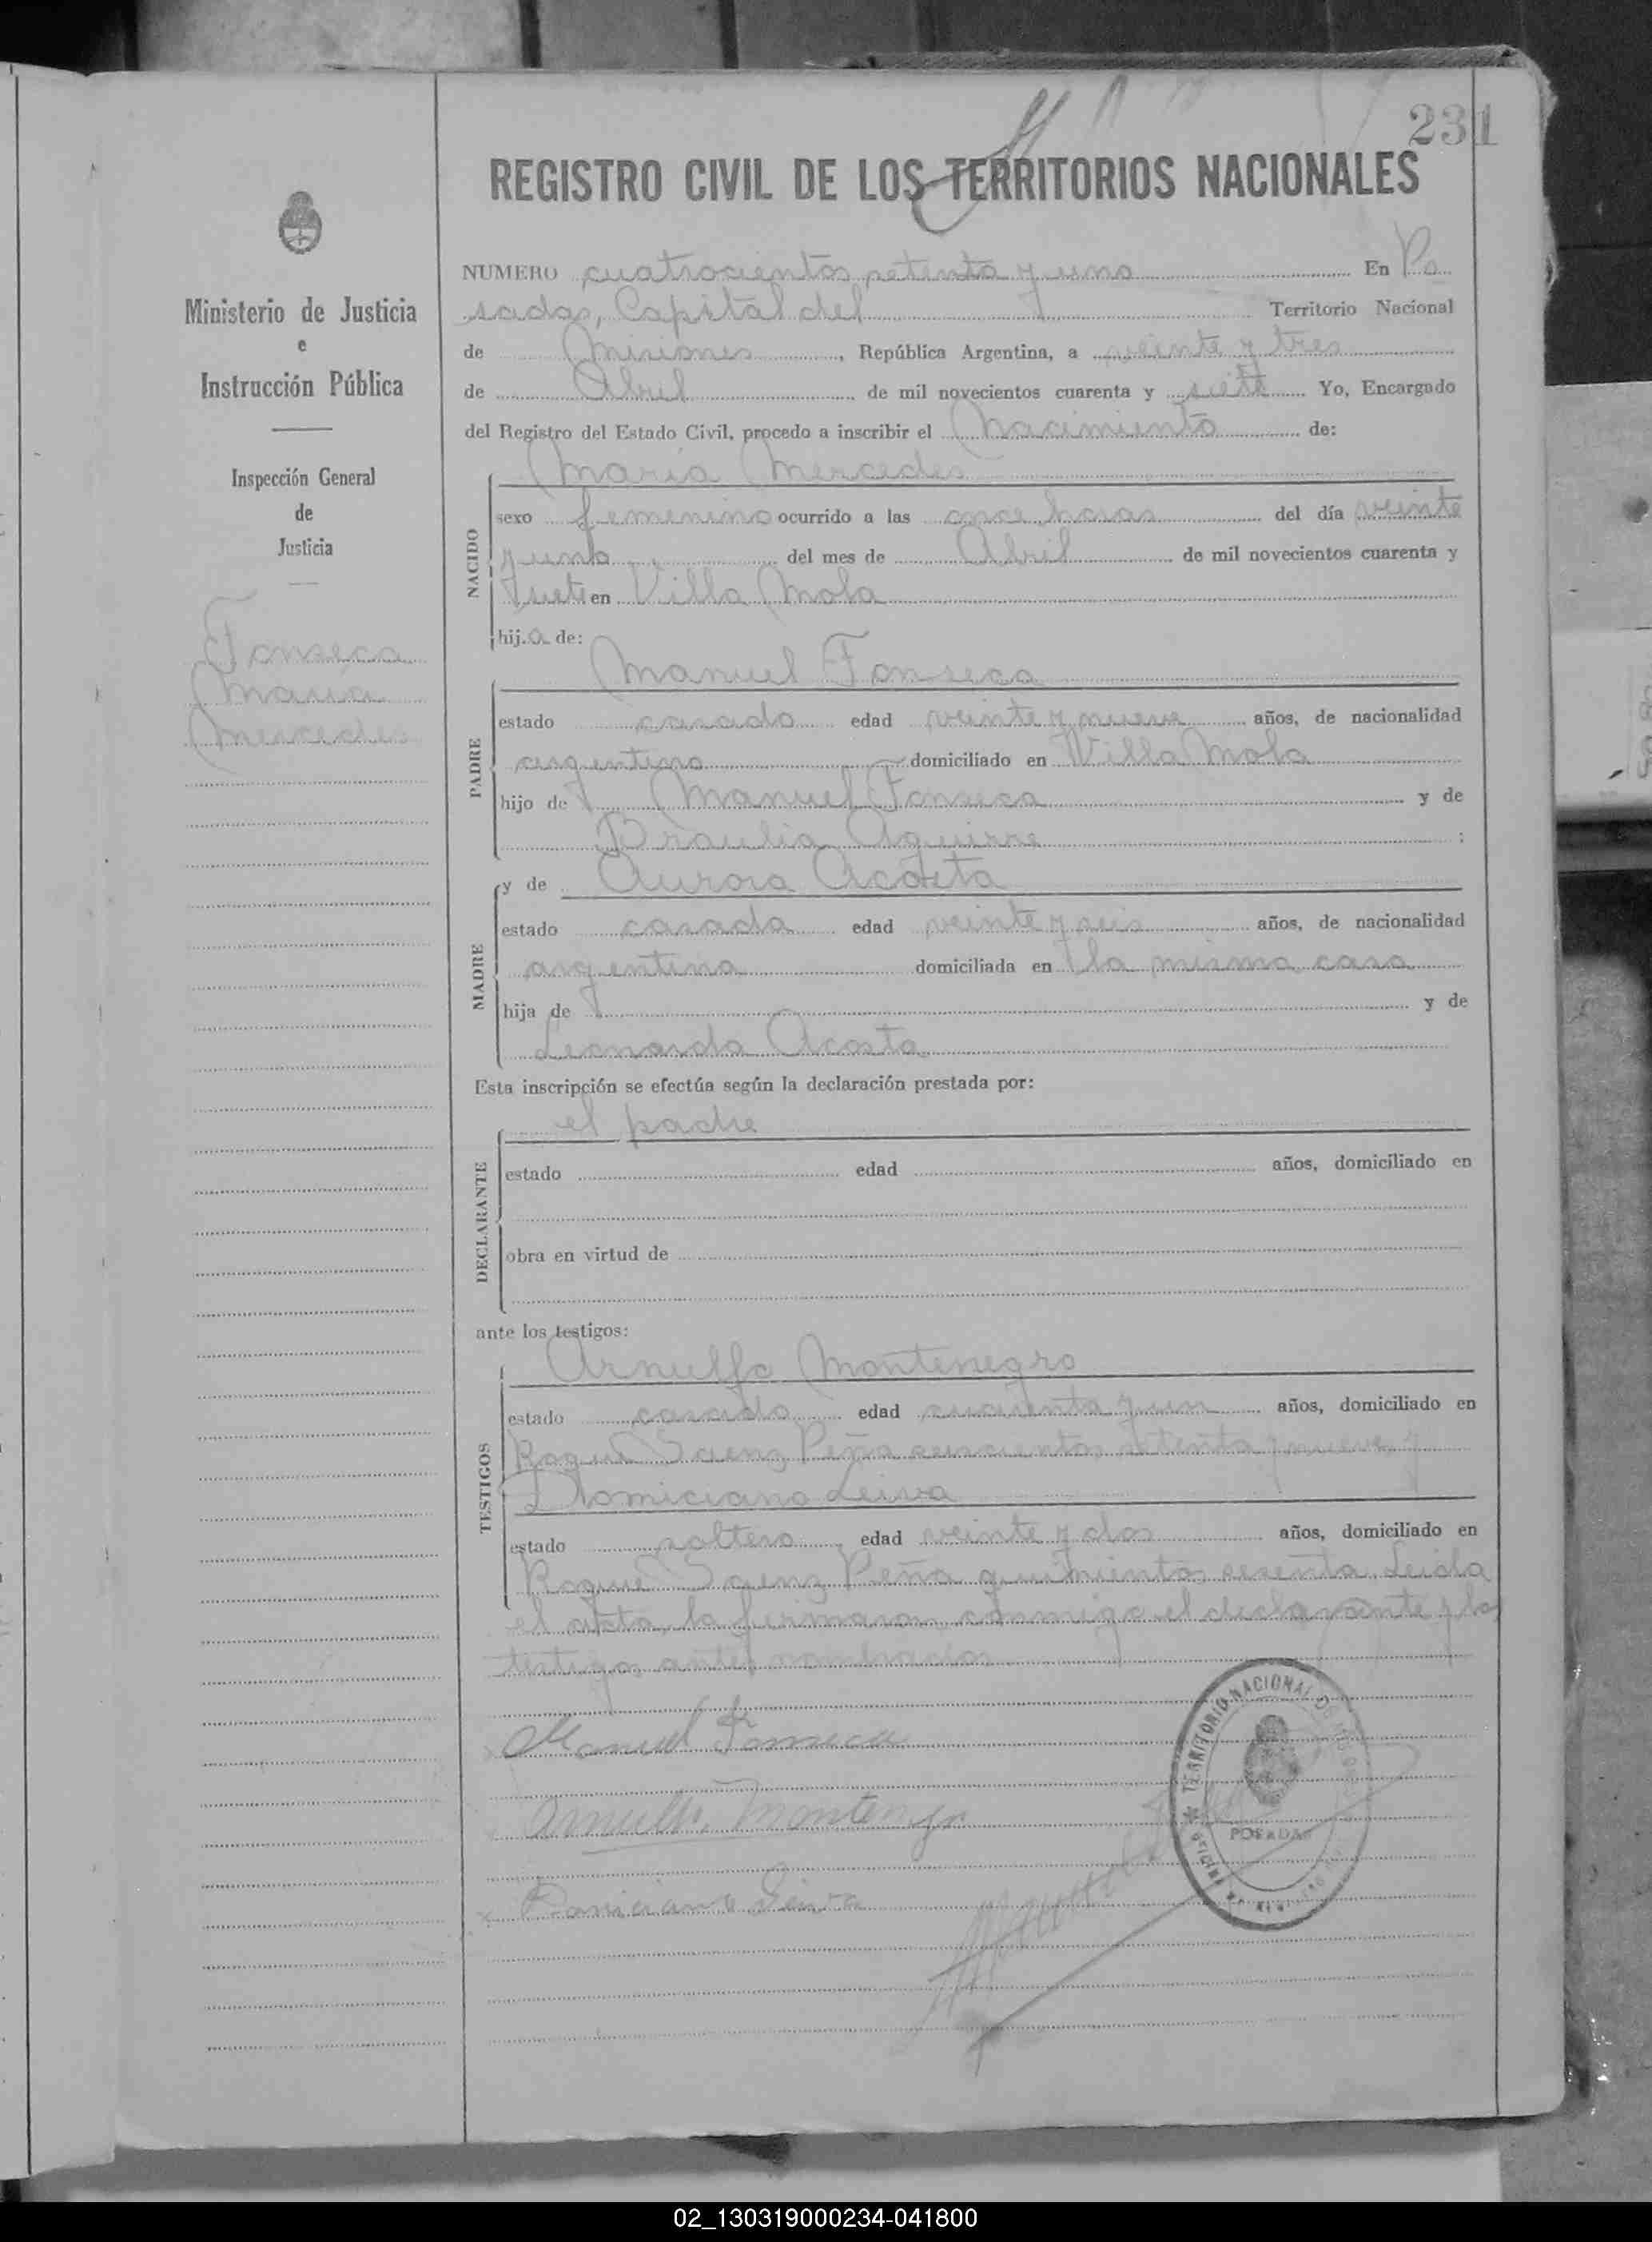 231
REGISTRO CIVIL DE LOS TERRITORIOS NACIONALES
Ministerio de Justicia
e
Instrucción Pública
Inspección General
de
Justicia
Fonseca
Maria
Mercedes
NUMERO cuatrocientos setenta y uno En Po
sadas, Capital del Territorio Nacional
de Misiones, República Argentina, a veinte y tres
de Abril de mil novecientos cuarenta y siete Yo, Encargado
del Registro del Estado Civil, procedo a inscribir el Nacimiento de:
Maria Mercedes
NACIDO
sexo femenino ocurrido a las once horas del día veinte
y uno del mes de Abril de mil novecientos cuarenta y
siete en Villa Mola
hij.a de:
Manuel Fonseca
PADRE
estado casado edad veinte y nueve años, de nacionalidad
argentino domiciliado en Villa Mola
hijo de Manuel Fonseca y de
Braulia Aguirre ;
y de Aurora Acosta
MADRE
estado casada edad veinte y seis años, de nacionalidad
argentina domiciliada en la misma casa
hija de y de
Leonarda Acosta
Esta inscripción se efectúa según la declaración prestada por:
el padre
DECLARANTE
estado edad años, domiciliado en
obra en virtud de
ante los testigos:
Arnulfo Montenegro
TESTIGOS
estado casado edad cuarenta y un años, domiciliado en
Roque Saenz Peña seiscientos setenta y nueve y
Domiciano Leiva
estado soltero edad veinte y dos años, domiciliado en
Roque Saenz Peña quinientos sesenta. Leida
el acta, la firmaron conmigo el declarante y los
testigos antes nombrados
Manuel Fonseca
Arnulfo Montenegro
Domiciano Leiva
TERRITORIO NACIONAL DE MISIONES
POSADAS
02_130319000234-041800